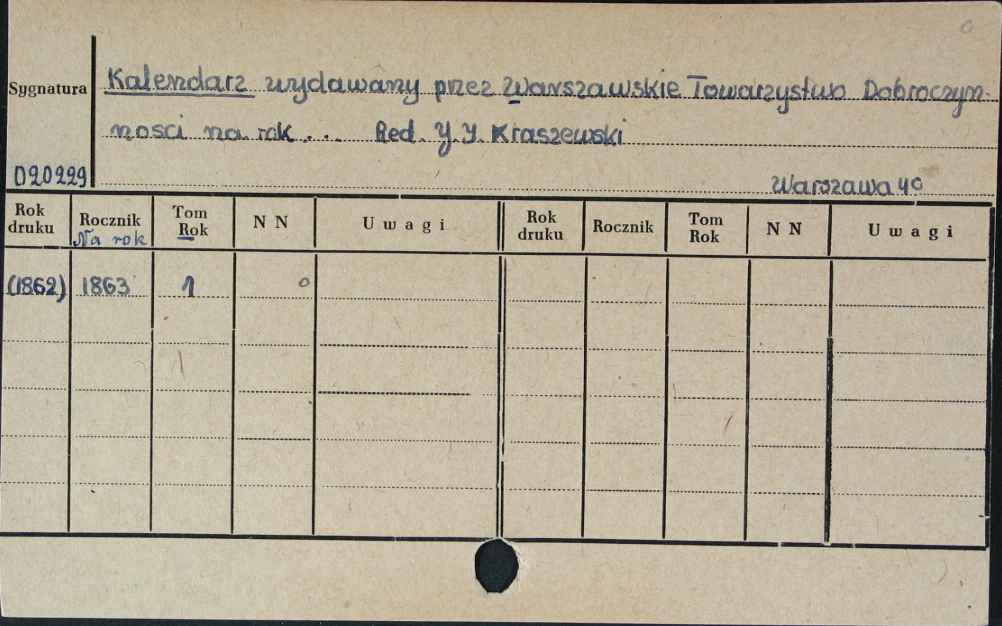 Sygnatura
Kalendarz wydawany przez Warszawskie Towarzystwo Dobroczyn-
ności na rok ... Red. J. I. Kraszewski
D20229
Warszawa 4°
Rok druku Rocznik Na rok Tom Rok N N Uwagi Rok druku Rocznik Tom Rok N N Uwagi
(1862) 1863 1